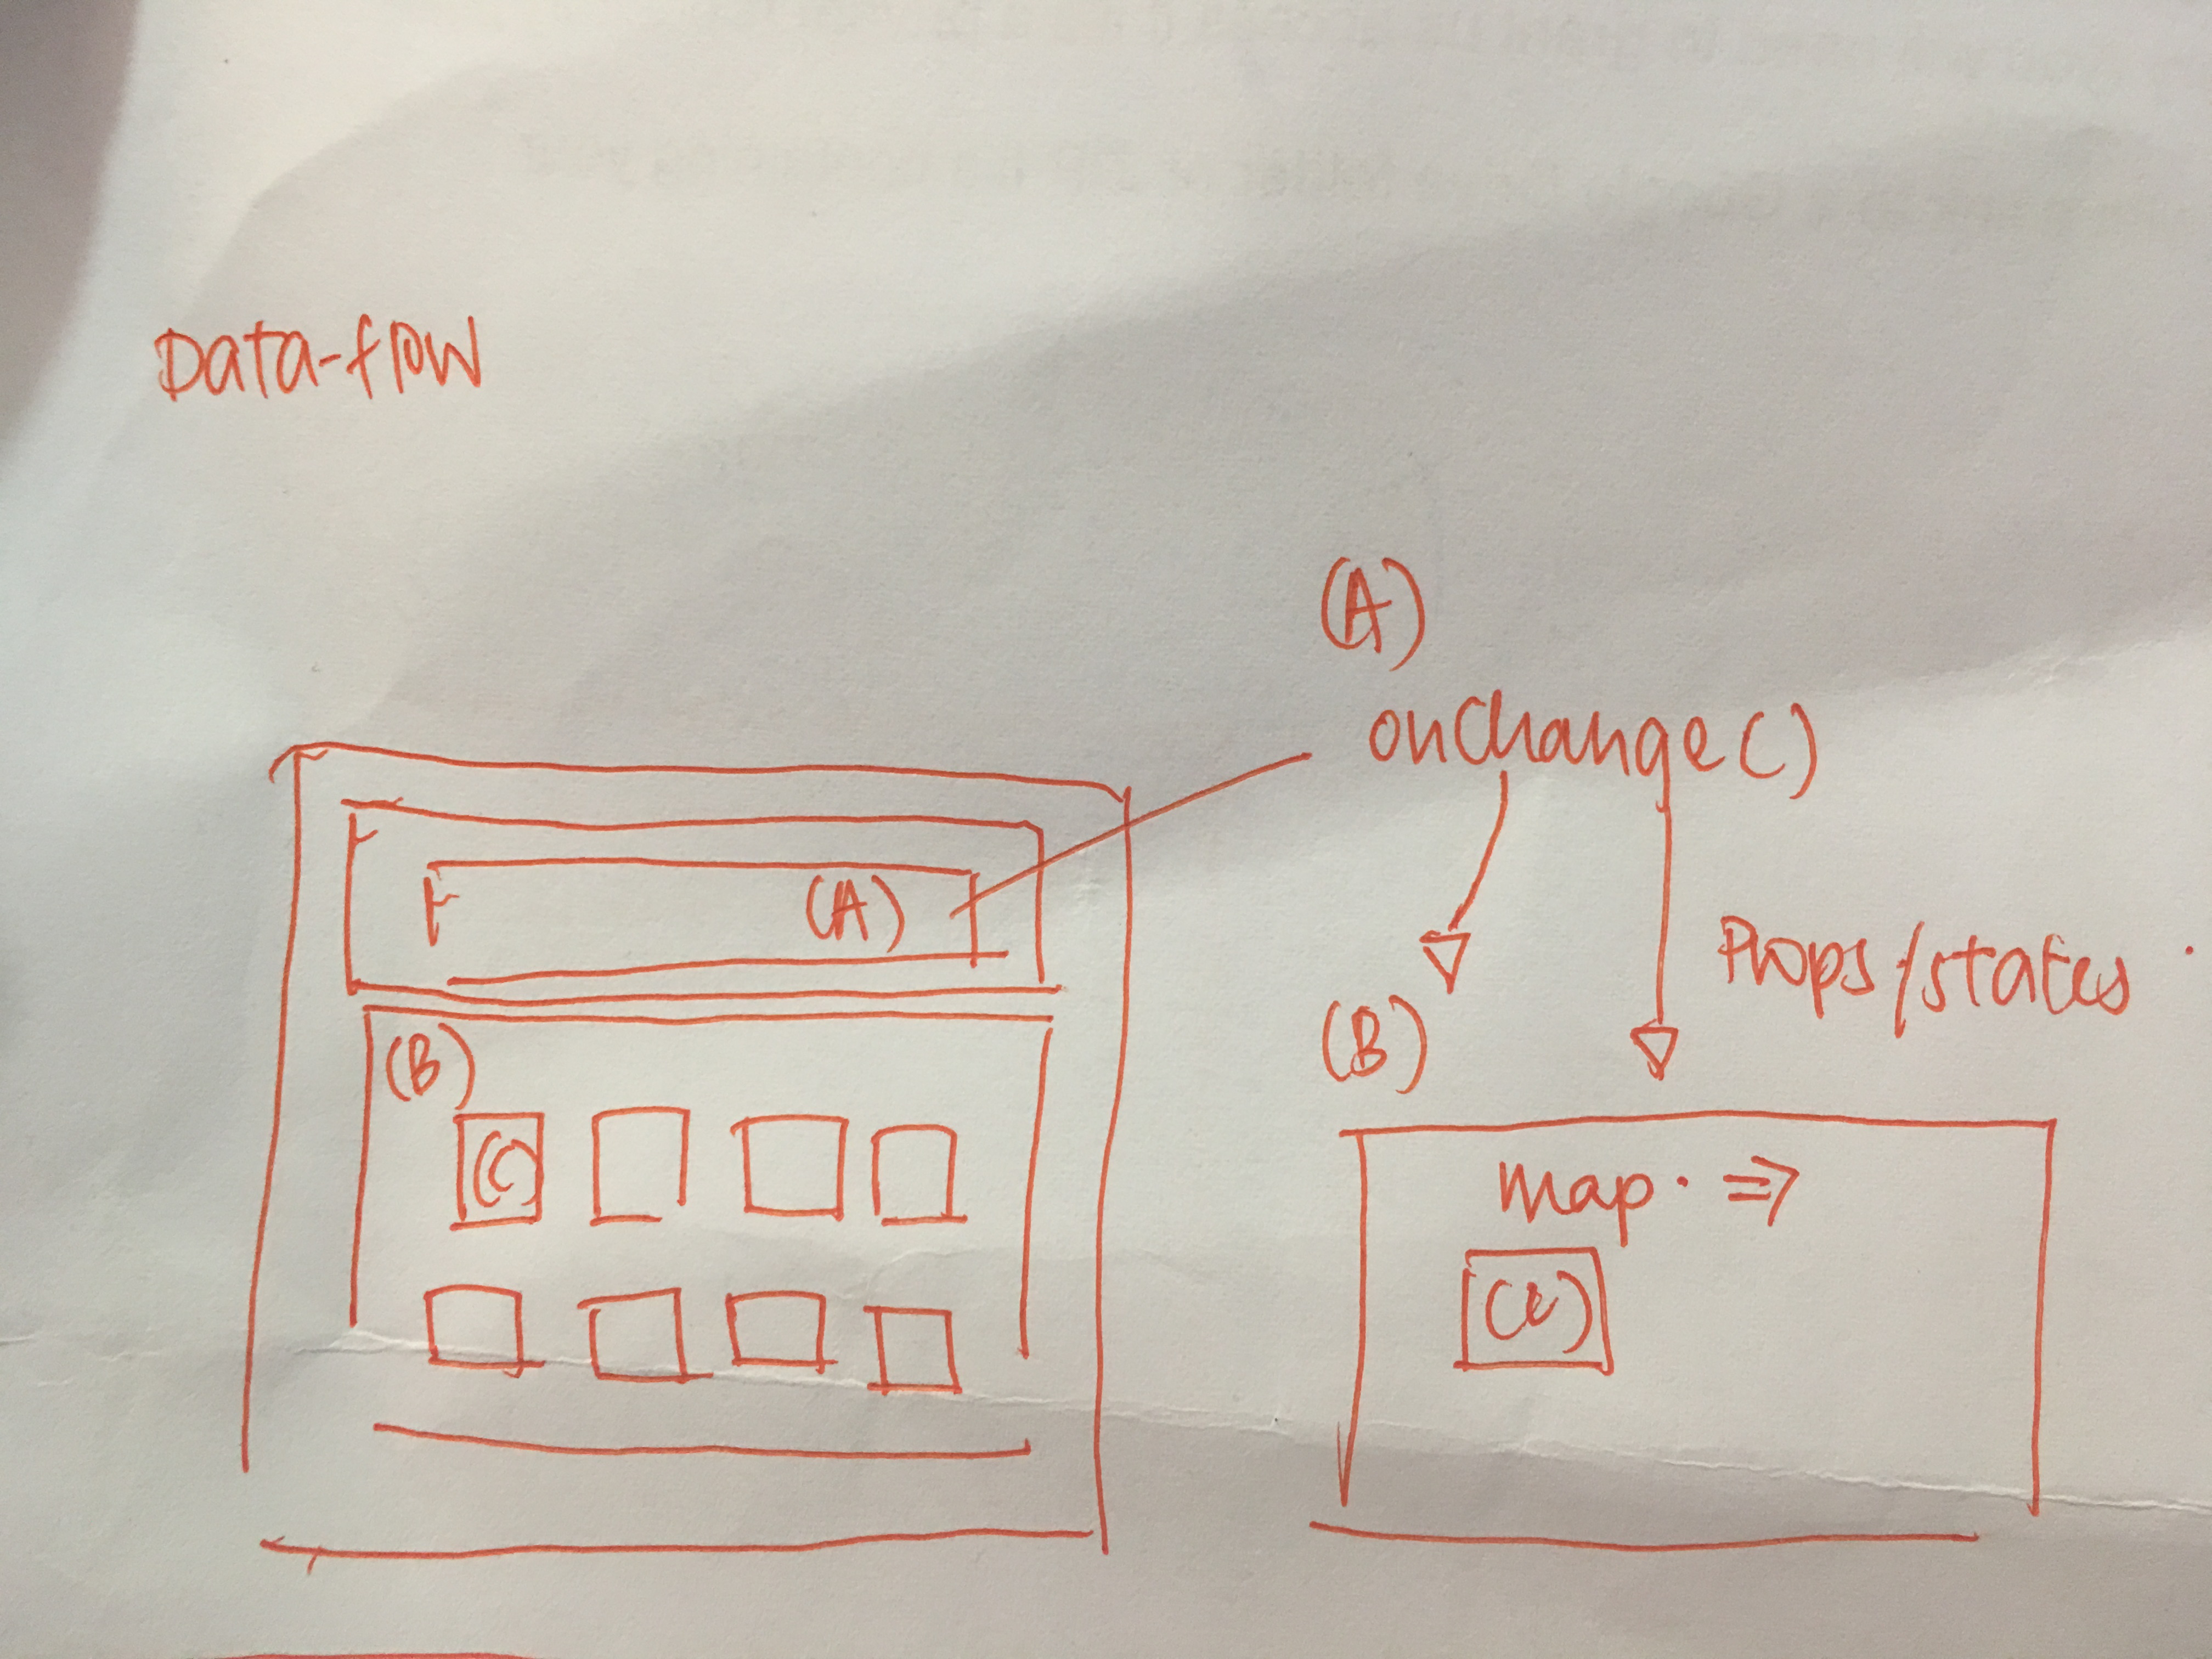 Data-flow
(A)
onChange()
(A)
Props/states
(B)
(B)
(C)
map. =>
(C)